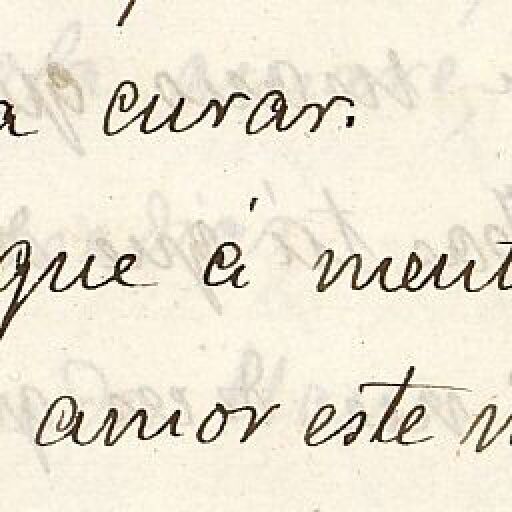 a curar.
que á ment
amor este n